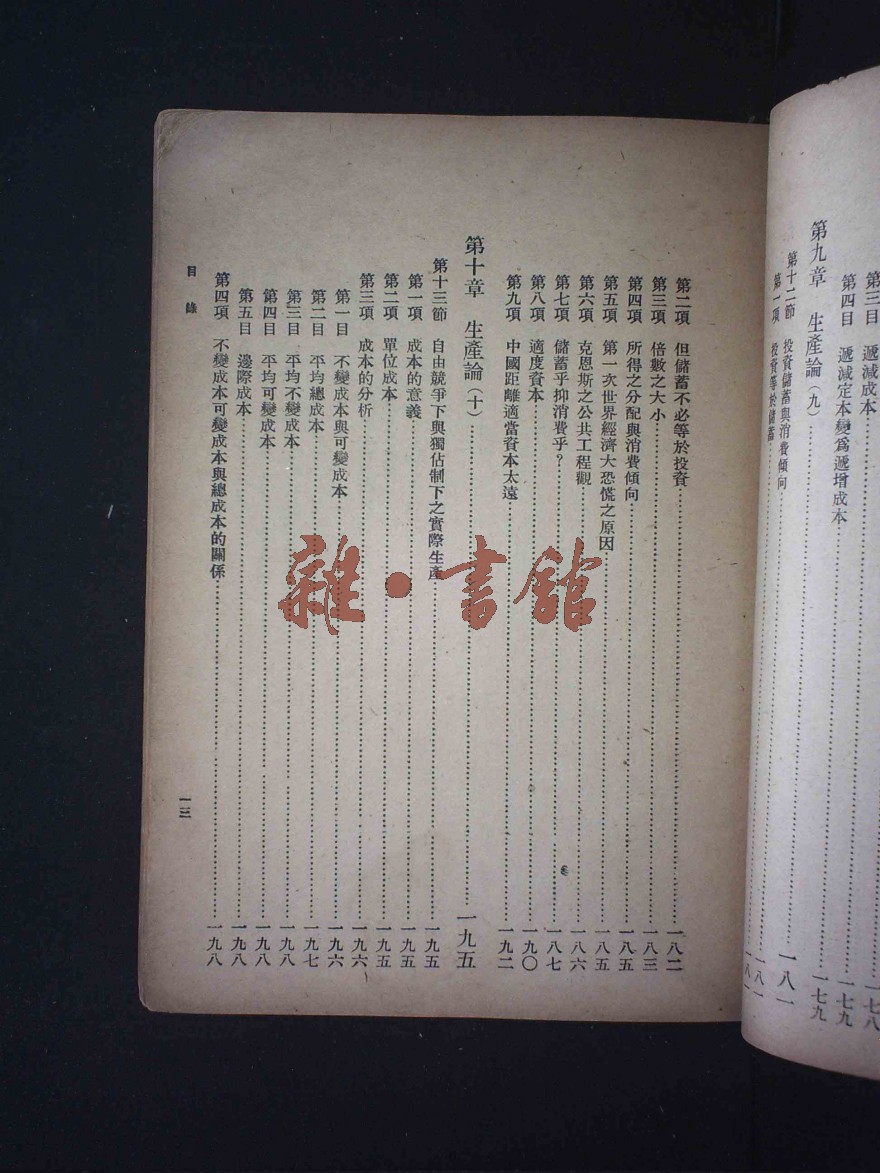 第三目　遞減成本………一七八
第四目　遞減定本變爲遞增成本………一七九
第九章　生產論（九）………一七九
第十二節　投資儲蓄與消費傾向………一八一
第一項　投資等於儲蓄………一八一
第二項　但儲蓄不必等於投資………一八二
第三項　倍數之大小………一八三
第四項　所得之分配與消費傾向………一八五
第五項　第一次世界經濟大恐慌之原因………一八五
第六項　克恩斯之公共工程觀………一八六
第七項　儲蓄乎抑消費乎？………一八七
第八項　適度資本………一九〇
第九項　中國距離適當資本太遠………一九二
第十章　生產論（十）………一九五
第十三節　自由競爭下與獨佔制下之實際生產………一九五
第一項　成本的意義………一九五
第二項　單位成本………一九五
第三項　成本的分析………一九六
第一目　不變成本與可變成本………一九六
第二目　平均總成本………一九七
第三目　平均不變成本………一九八
第四目　平均可變成本………一九八
第五目　邊際成本………一九八
第四項　不變成本可變成本與總成本的關係………一九八
目錄
一三
雜·書館